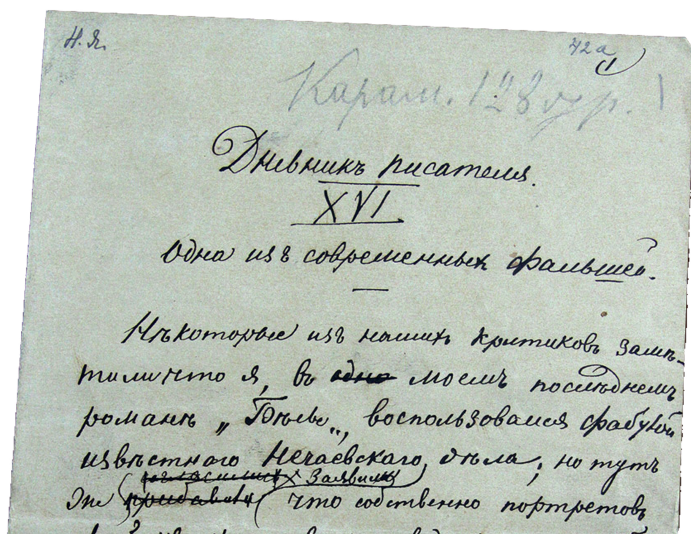 Н. Я. 42а
1
Карам. 128 р. 1
Дневникъ писателя.
XVI
Одна изъ современныхъ фальшей.
Нѣкоторые изъ нашихъ критиковъ замѣ-
тили что я, въ одно моемъ послѣднемъ
романѣ „Бѣсы”, воспользовался фабулой
извѣстнаго Нечаевскаго дѣла; но тутъ
заявили
же прибавили что собственно портретовъ